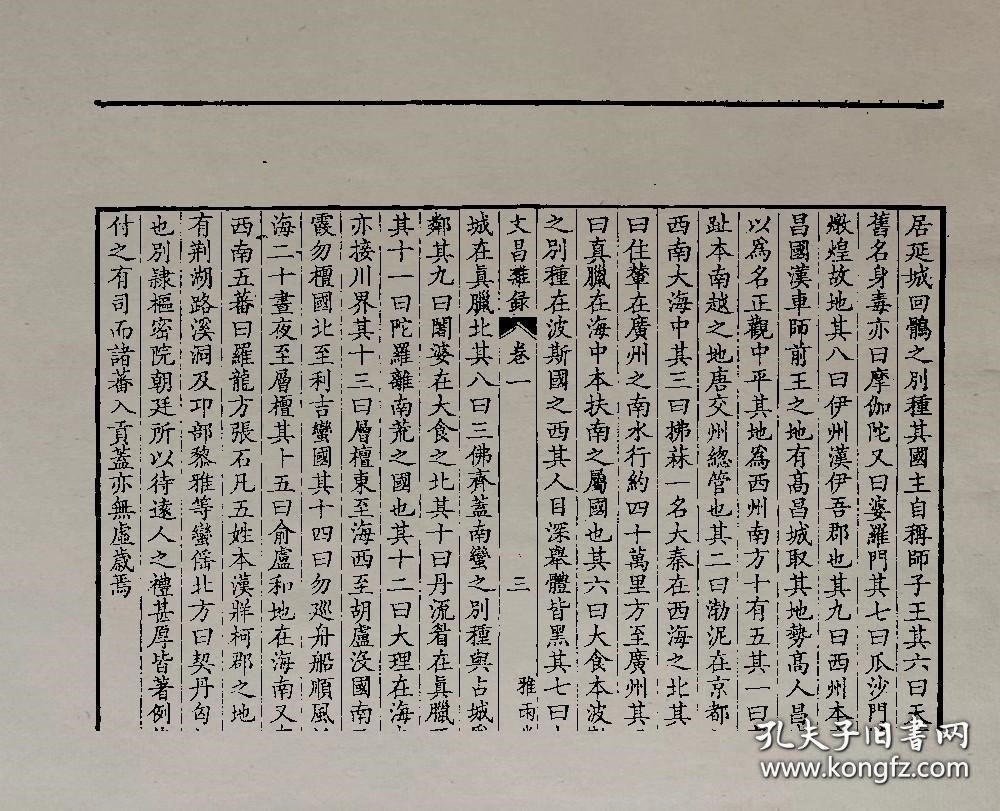 居延城回鶻之别種其國主自稱師子王其六曰天
舊名身毒亦曰摩伽陀又曰婆羅門其七曰瓜沙門
燉煌故地其八曰伊州漢伊吾郡也其九曰西州本
昌國漢車師前王之地有髙昌城取其地勢髙人昌
以爲名正觀中平其地爲西州南方十有五其一曰
趾本南越之地唐交州總管也其二曰渤泥在京都
西南大海中其三曰拂菻一名大秦在西海之北其
曰住輦在廣州之南水行約四十萬里方至廣州其
曰真臘在海中本扶南之屬國也其六曰大食本波
之别種在波斯國之西其人目深舉體皆黑其七曰
文昌雜録 卷一 三 雅雨
城在眞臘北其八曰三佛齊蓋南蠻之别種與占城
鄰其九曰闍婆在大食之北其十曰丹流眉在眞臘
其十一曰陀羅離南荒之國也其十二曰大理在海
亦接川界其十三曰層檀東至海西至胡盧没國南
霞勿檀國北至利吉蠻國其十四曰勿廵舟船順風
海二十晝夜至層檀其十五曰俞盧和地在海南又
西南五蕃曰羅龍方張石凡五姓本漢牂柯郡之地
有荆湖路溪洞及邛部黎雅等蠻傜北方曰契丹匈
也别隷樞密院朝廷所以待逺人之禮甚厚皆著例
付之有司而諸蕃入貢蓋亦無虚歲焉
孔夫子旧书网
www.kongfz.com